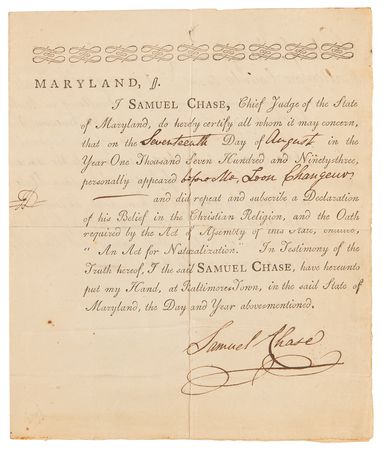 MARYLAND, ſſ.
I SAMUEL CHASE, Chief Judge of the State
of Maryland, do hereby certify all whom it may concern,
that on the Seventeenth Day of August in the
Year One Thousand Seven Hundred and Ninetythree,
personally appeared before Me, Leon Changeur
and did repeat and subscribe a Declaration
of his Belief in the Christian Religion, and the Oath
required by the Act of Assembly of this State, entitled,
“An Act for Naturalization.” In Testimony of the
Truth hereof, I the said SAMUEL CHASE, have hereunto
put my Hand, at Baltimore-Town, in the said State of
Maryland, the Day and Year above-mentioned.
Samuel Chase